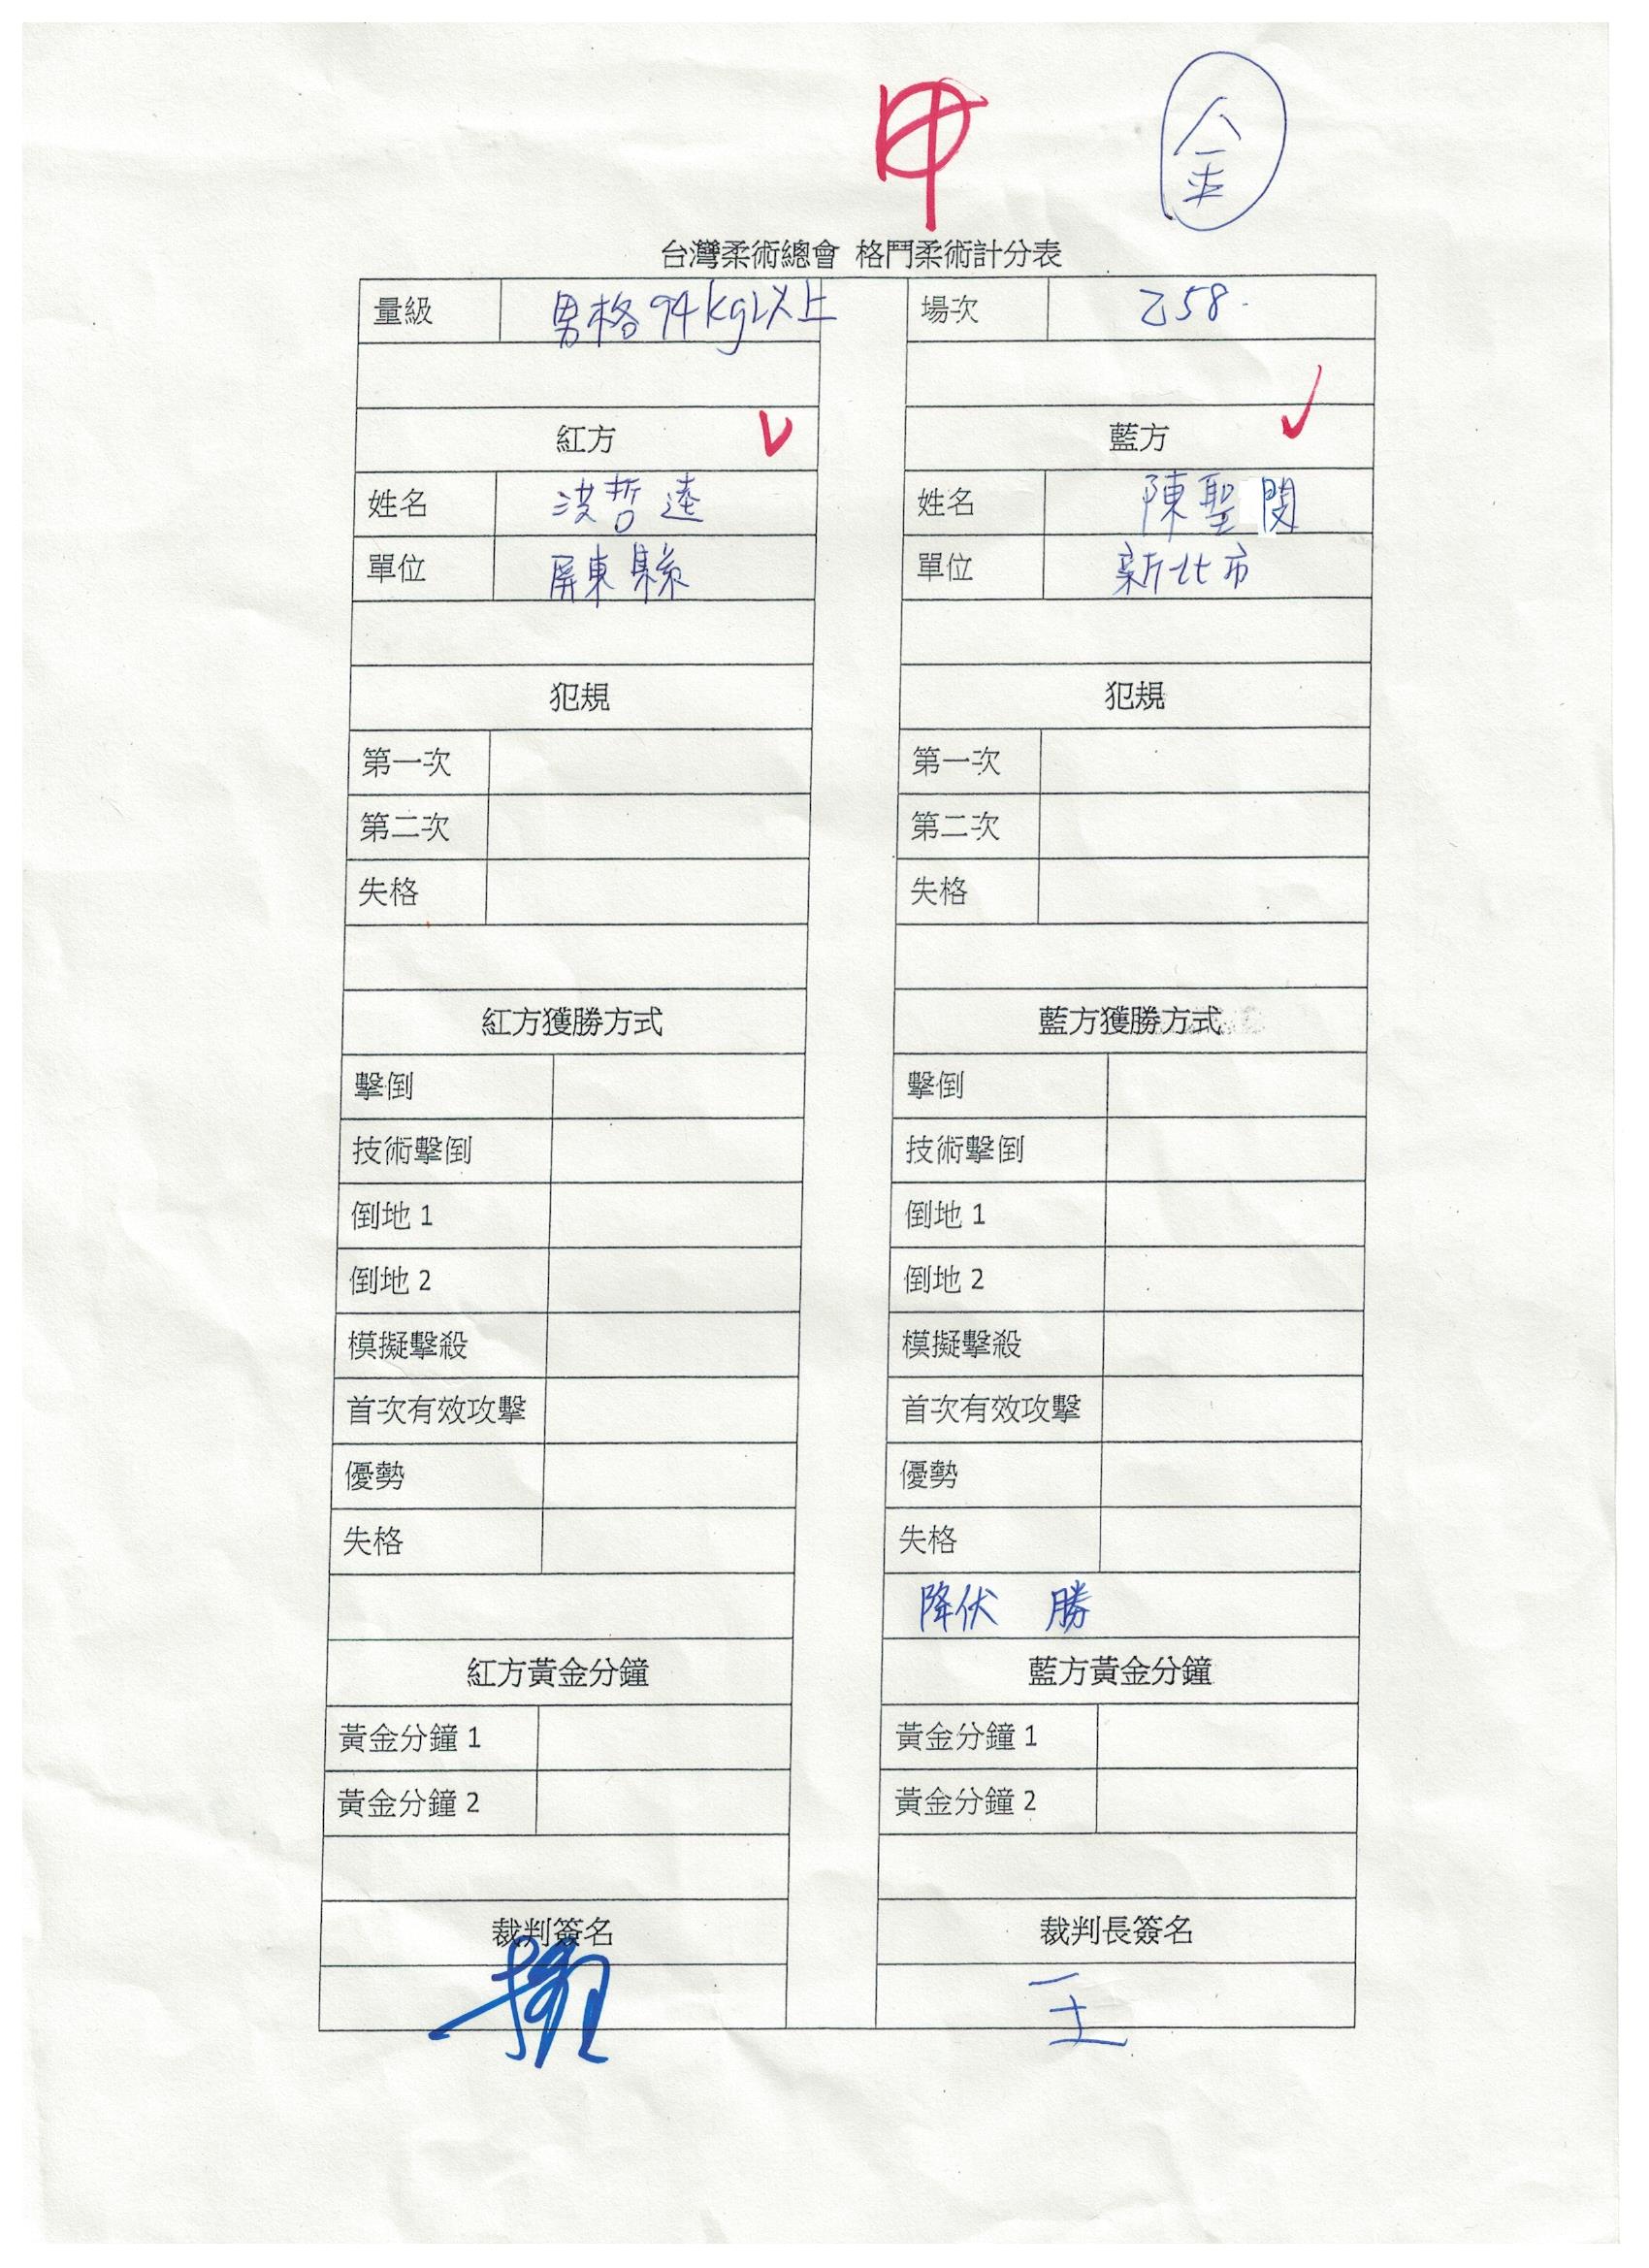 甲 金
台灣柔術總會 格鬥柔術計分表
量級 男格94kg以上 場次 乙58
紅方 藍方
姓名 洪哲逵 姓名 陳聖閔
單位 屏東縣 單位 新北市
犯規 犯規
第一次 第一次
第二次 第二次
失格 失格
紅方獲勝方式 藍方獲勝方式
擊倒 擊倒
技術擊倒 技術擊倒
倒地 1 倒地 1
倒地 2 倒地 2
模擬擊殺 模擬擊殺
首次有效攻擊 首次有效攻擊
優勢 優勢
失格 失格
降伏 勝
紅方黃金分鐘 藍方黃金分鐘
黃金分鐘 1 黃金分鐘 1
黃金分鐘 2 黃金分鐘 2
裁判簽名 裁判長簽名
王